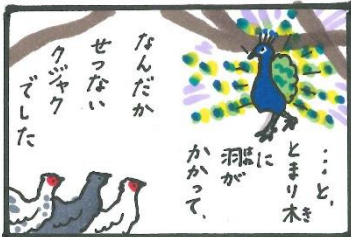 …と、
とまり木き
に
羽はねが
かかって、
なんだか
せつない
クジャク
でした